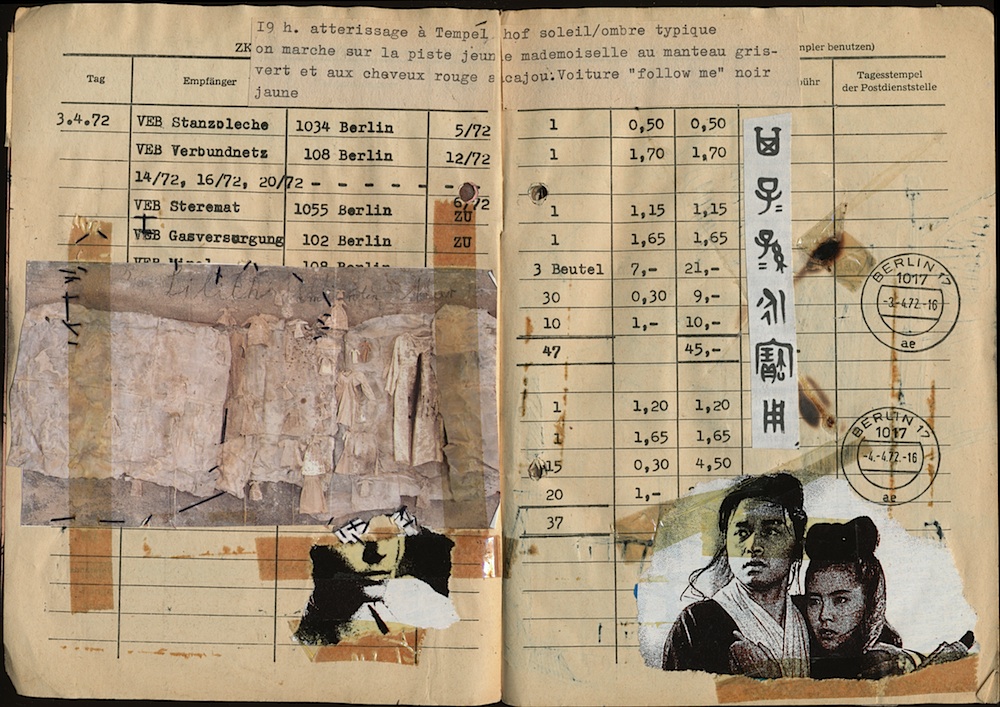 I9 h. atterissage à Tempelhof soleil/ombre typique
on marche sur la piste jeune mademoiselle au manteau gris-
vert et aux cheveux rouge acajou.Voiture "follow me" noir
jaune
ZK
mpler benutzen)
Tag
Empfänger
ühr
Tagesstempel
der Postdienststelle
3.4.72 VEB Stanzbleche 1034 Berlin 5/72 1 0,50 0,50
VEB Verbundnetz 108 Berlin 12/72 1 1,70 1,70
14/72, 16/72, 20/72 - - - - - - 6/72
VEB Steremat 1055 Berlin ZU 1 1,15 1,15
VEB Gasversurgung 102 Berlin ZU 1 1,65 1,65
3 Beutel 7,- 21,-
30 0,30 9,-
10 1,- 10,-
47 45,-
1 1,20 1,20
1 1,65 1,65
15 0,30 4,50
20 1,-
37
其
子=
孫=
永
寶
用
BERLIN 17
1017
-3.-4.72.-16
ae
BERLIN 17
1017
-4.-4.72.-16
ae